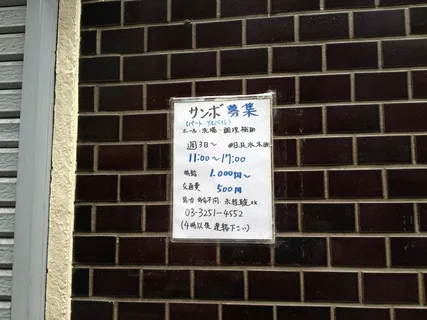 サンボ募集
(パート・アルバイト)
ホール・洗場・調理補助
週3日～ 月水木
11:00～17:00
時給 1.000円～
交通費 500円
未経験ok
03-3251-4552
(4時以後連絡下さい)